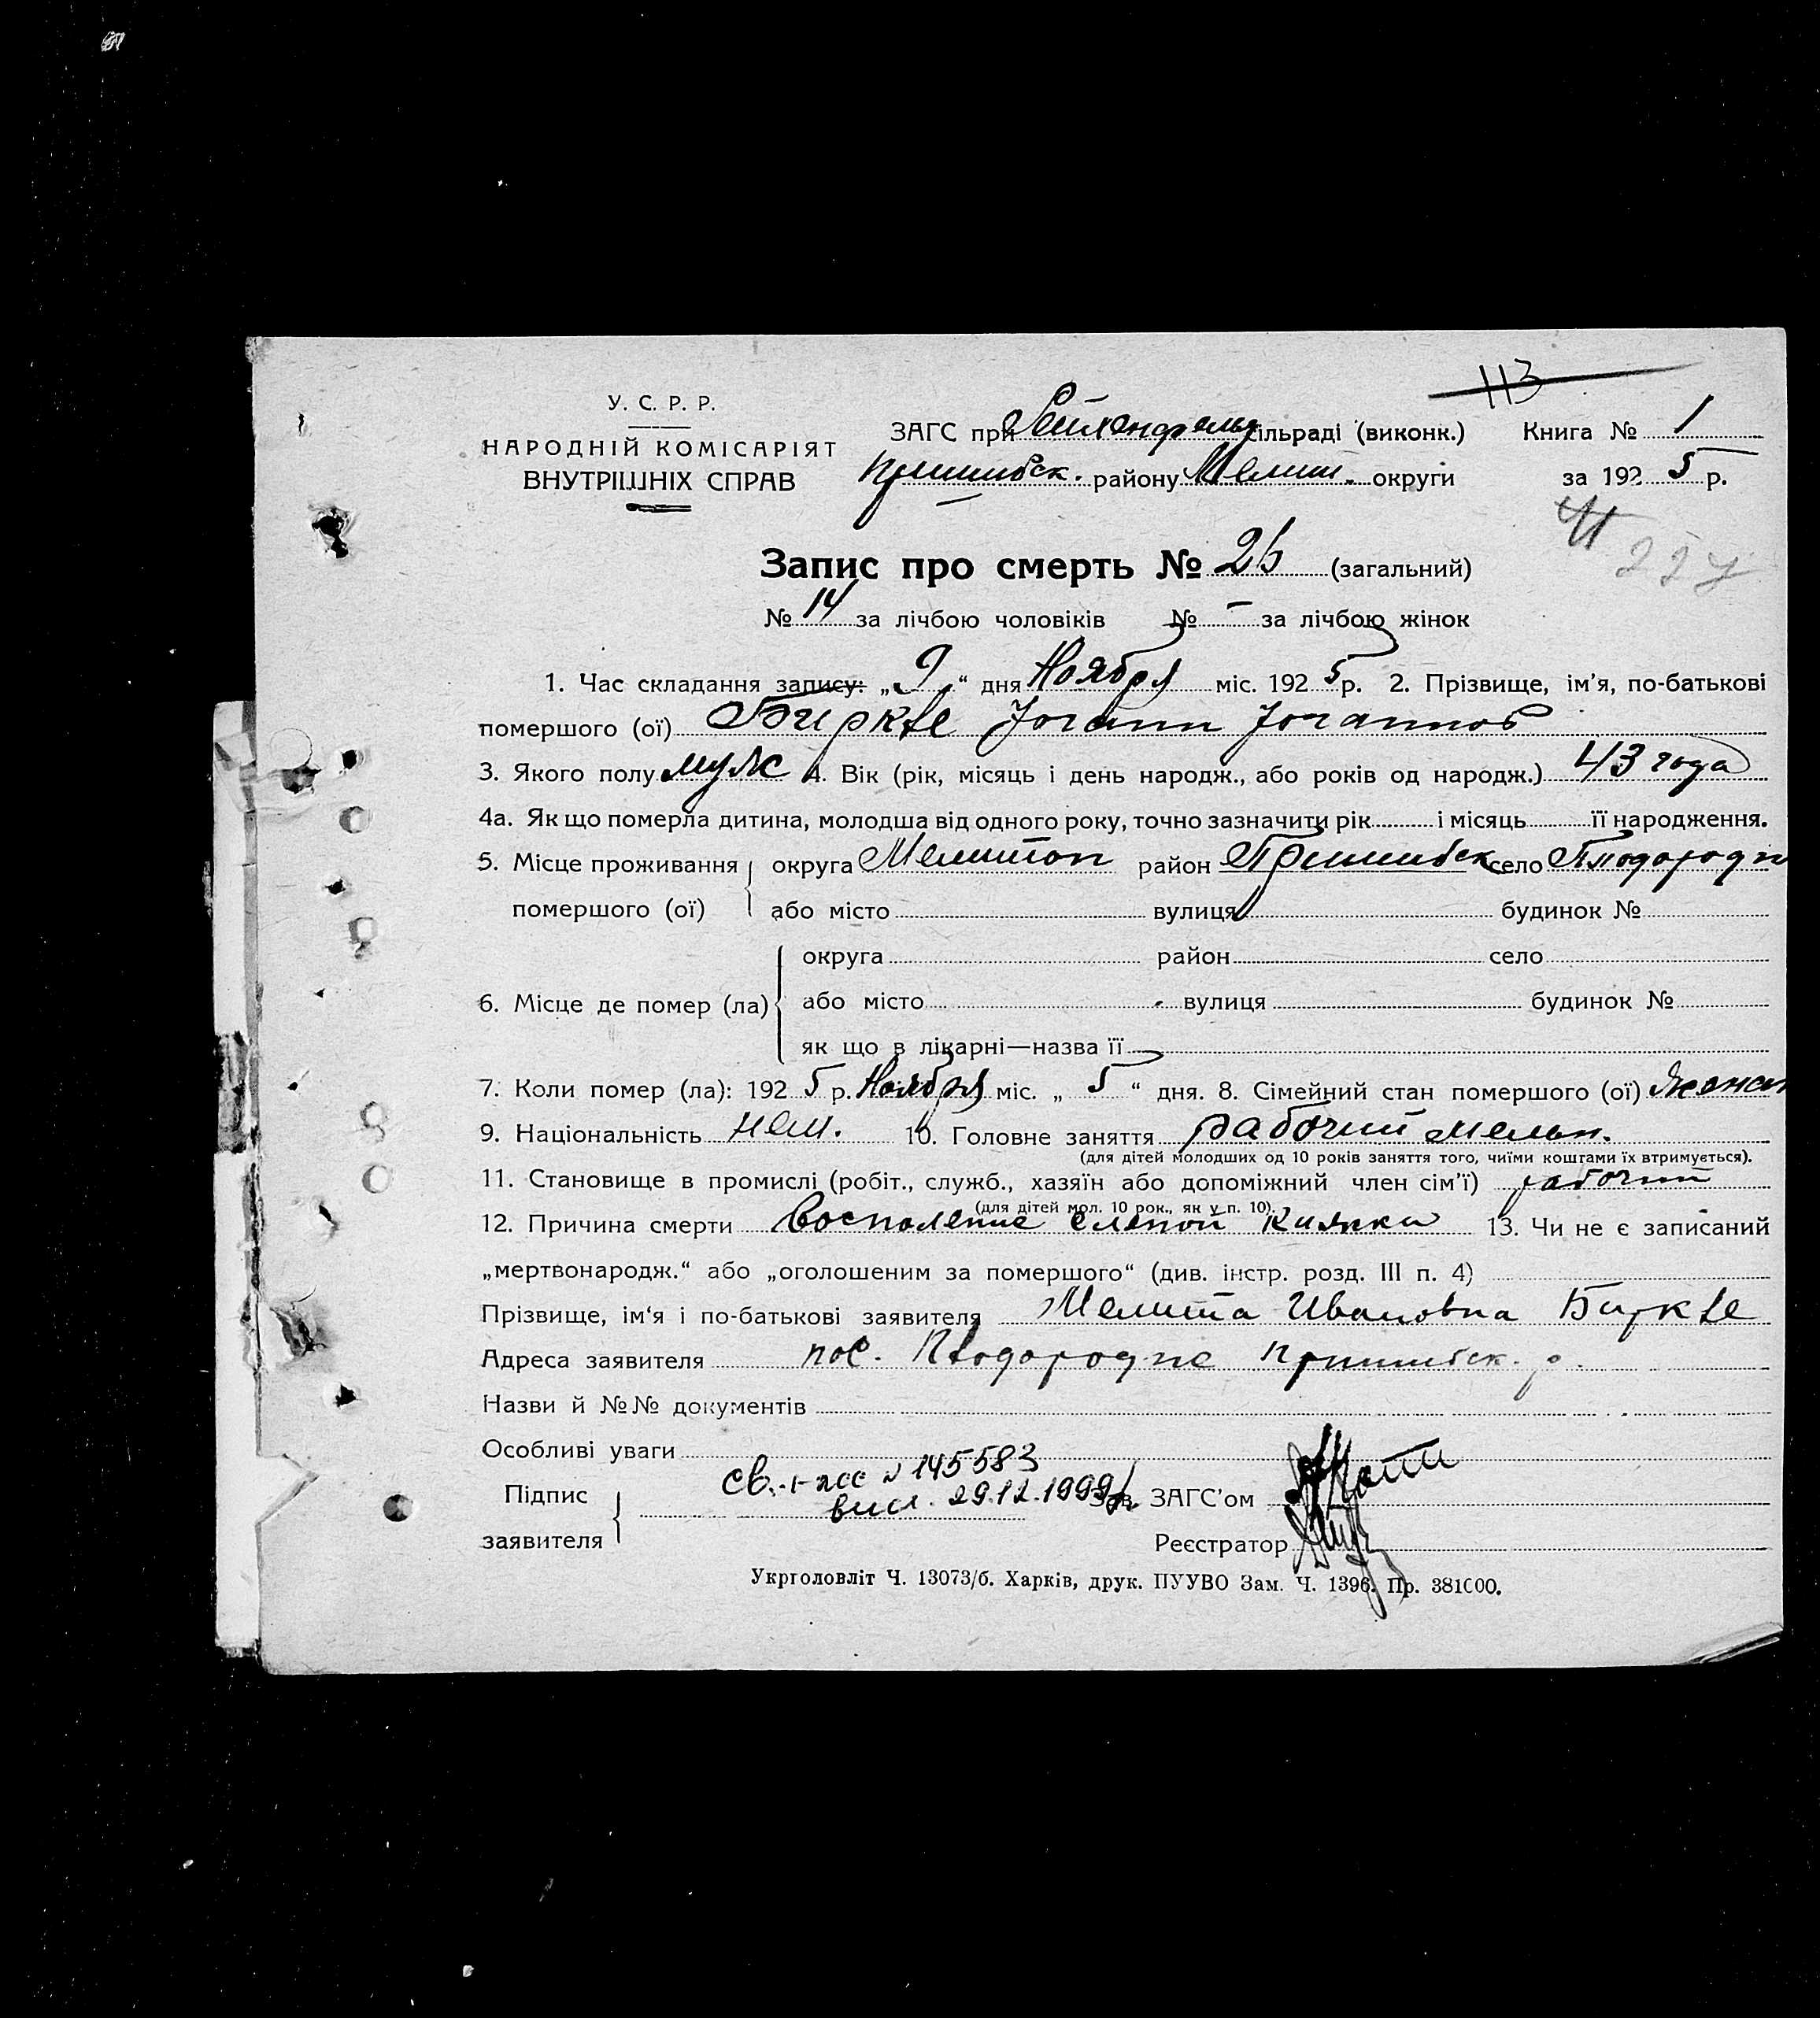 113
У. С. Р. Р.
НАРОДНІЙ КОМІСАРІЯТ
ВНУТРІШНІХ СПРАВ
ЗАГС при Рейхенфельд сільраді (виконк.) Книга № 1
Пришибск. району Мелит. округи за 1925 р.
227
Запис про смерть № 26 (загальний)
№ 14 за лічбою чоловіків № – за лічбою жінок
1. Час складання запису: „9“ дня Ноября міс. 1925 р. 2. Прізвище, ім’я, по-батькові
помершого (ої) Биркле Иоганн Иоганнов
3. Якого полу муж 4. Вік (рік, місяць і день народж., або років од народж.) 43 года
4а. Як що померла дитина, молодша від одного року, точно зазначити рік і місяць її народження.
5. Місце проживання округа Мелитоп район Пришибск село Плодородн
помершого (ої) або місто вулиця будинок №
округа район село
6. Місце де помер (ла) або місто вулиця будинок №
як що в лікарні—назва її
7. Коли помер (ла): 1925 р. Ноября міс. „5“ дня. 8. Сімейний стан помершого (ої) женат
9. Національність нем. 10. Головне заняття рабочий мельн.
(для дітей молодших од 10 років заняття того, чиїми коштами їх втримується).
11. Становище в промислі (робіт., служб., хазяїн або допоміжний член сім’ї) рабочий
(для дітей мол. 10 рок., як у п. 10).
12. Причина смерти Воспаление слепой кишки 13. Чи не є записаний
„мертвонародж.“ або „оголошеним за помершого“ (див. інстр. розд. III п. 4)
Прізвище, ім‘я і по-батькові заявителя Мелита Ивановна Биркле
Адреса заявителя пос. Плодородне Пришибск. р.
Назви й №№ документів
Особливі уваги
св. 1-жс № 145583
Підпис вид. 29.12.1999 Зав. ЗАГС’ом
заявителя Реєстратор
Укрголовліт Ч. 13073/б. Харків, друк. ПУУВО Зам. Ч. 1396. Пр. 381000.